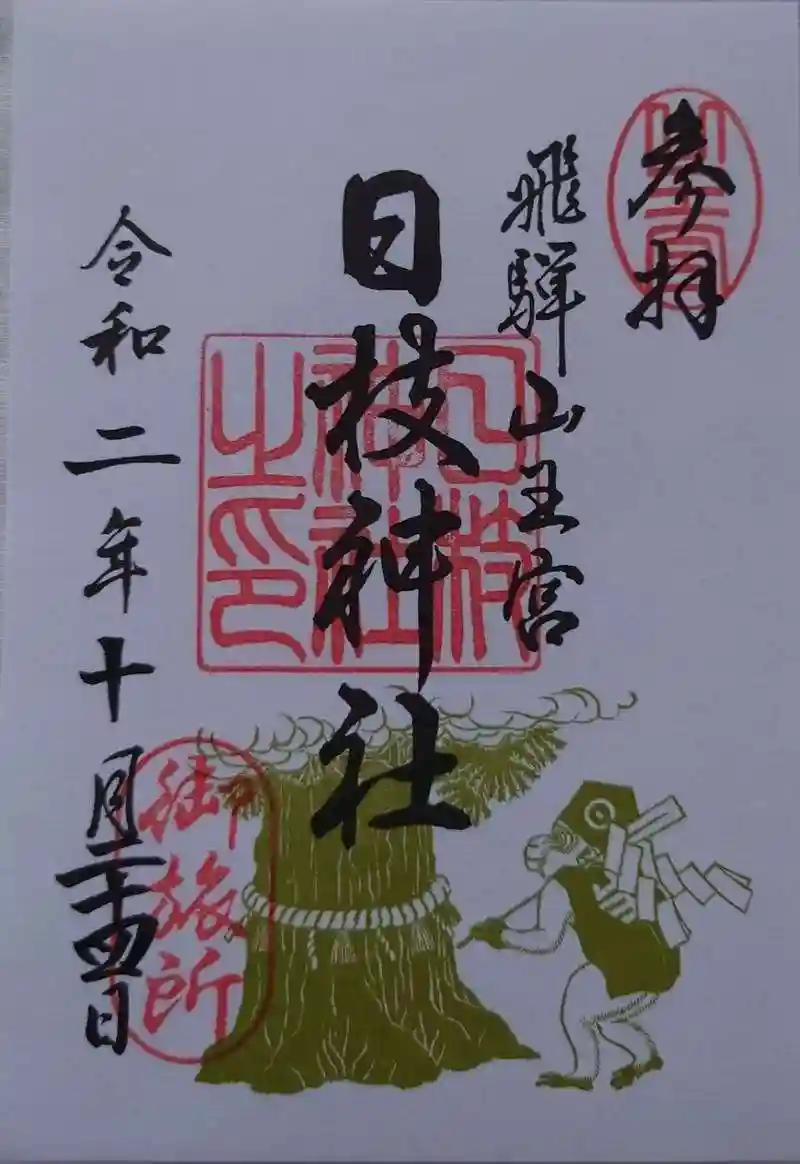 参拝
飛騨山王宮
日枝神社
日枝神社之印
令和二年十月二十四日
御旅所